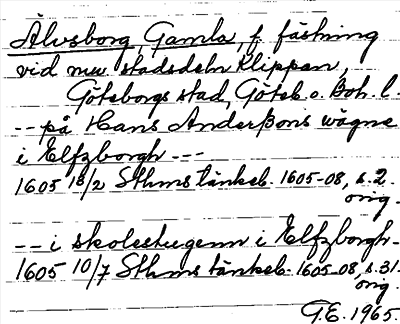 Älvsborg, Gamla, f. fästning
vid nuv. stadsdeln Klippan,
Göteborgs stad, Göteb. o. Boh. l.
-- på Hans Anderßons wägne
i Elfzborgh ---
1605 18/2 Sthms tänkeb. 1605-08, s. 2.
orig.
-- i skolestugenn i Elfzborgh-
1605 10/7 Sthms tänkeb. 1605-08, s. 31.
orig.
G.E. 1965.